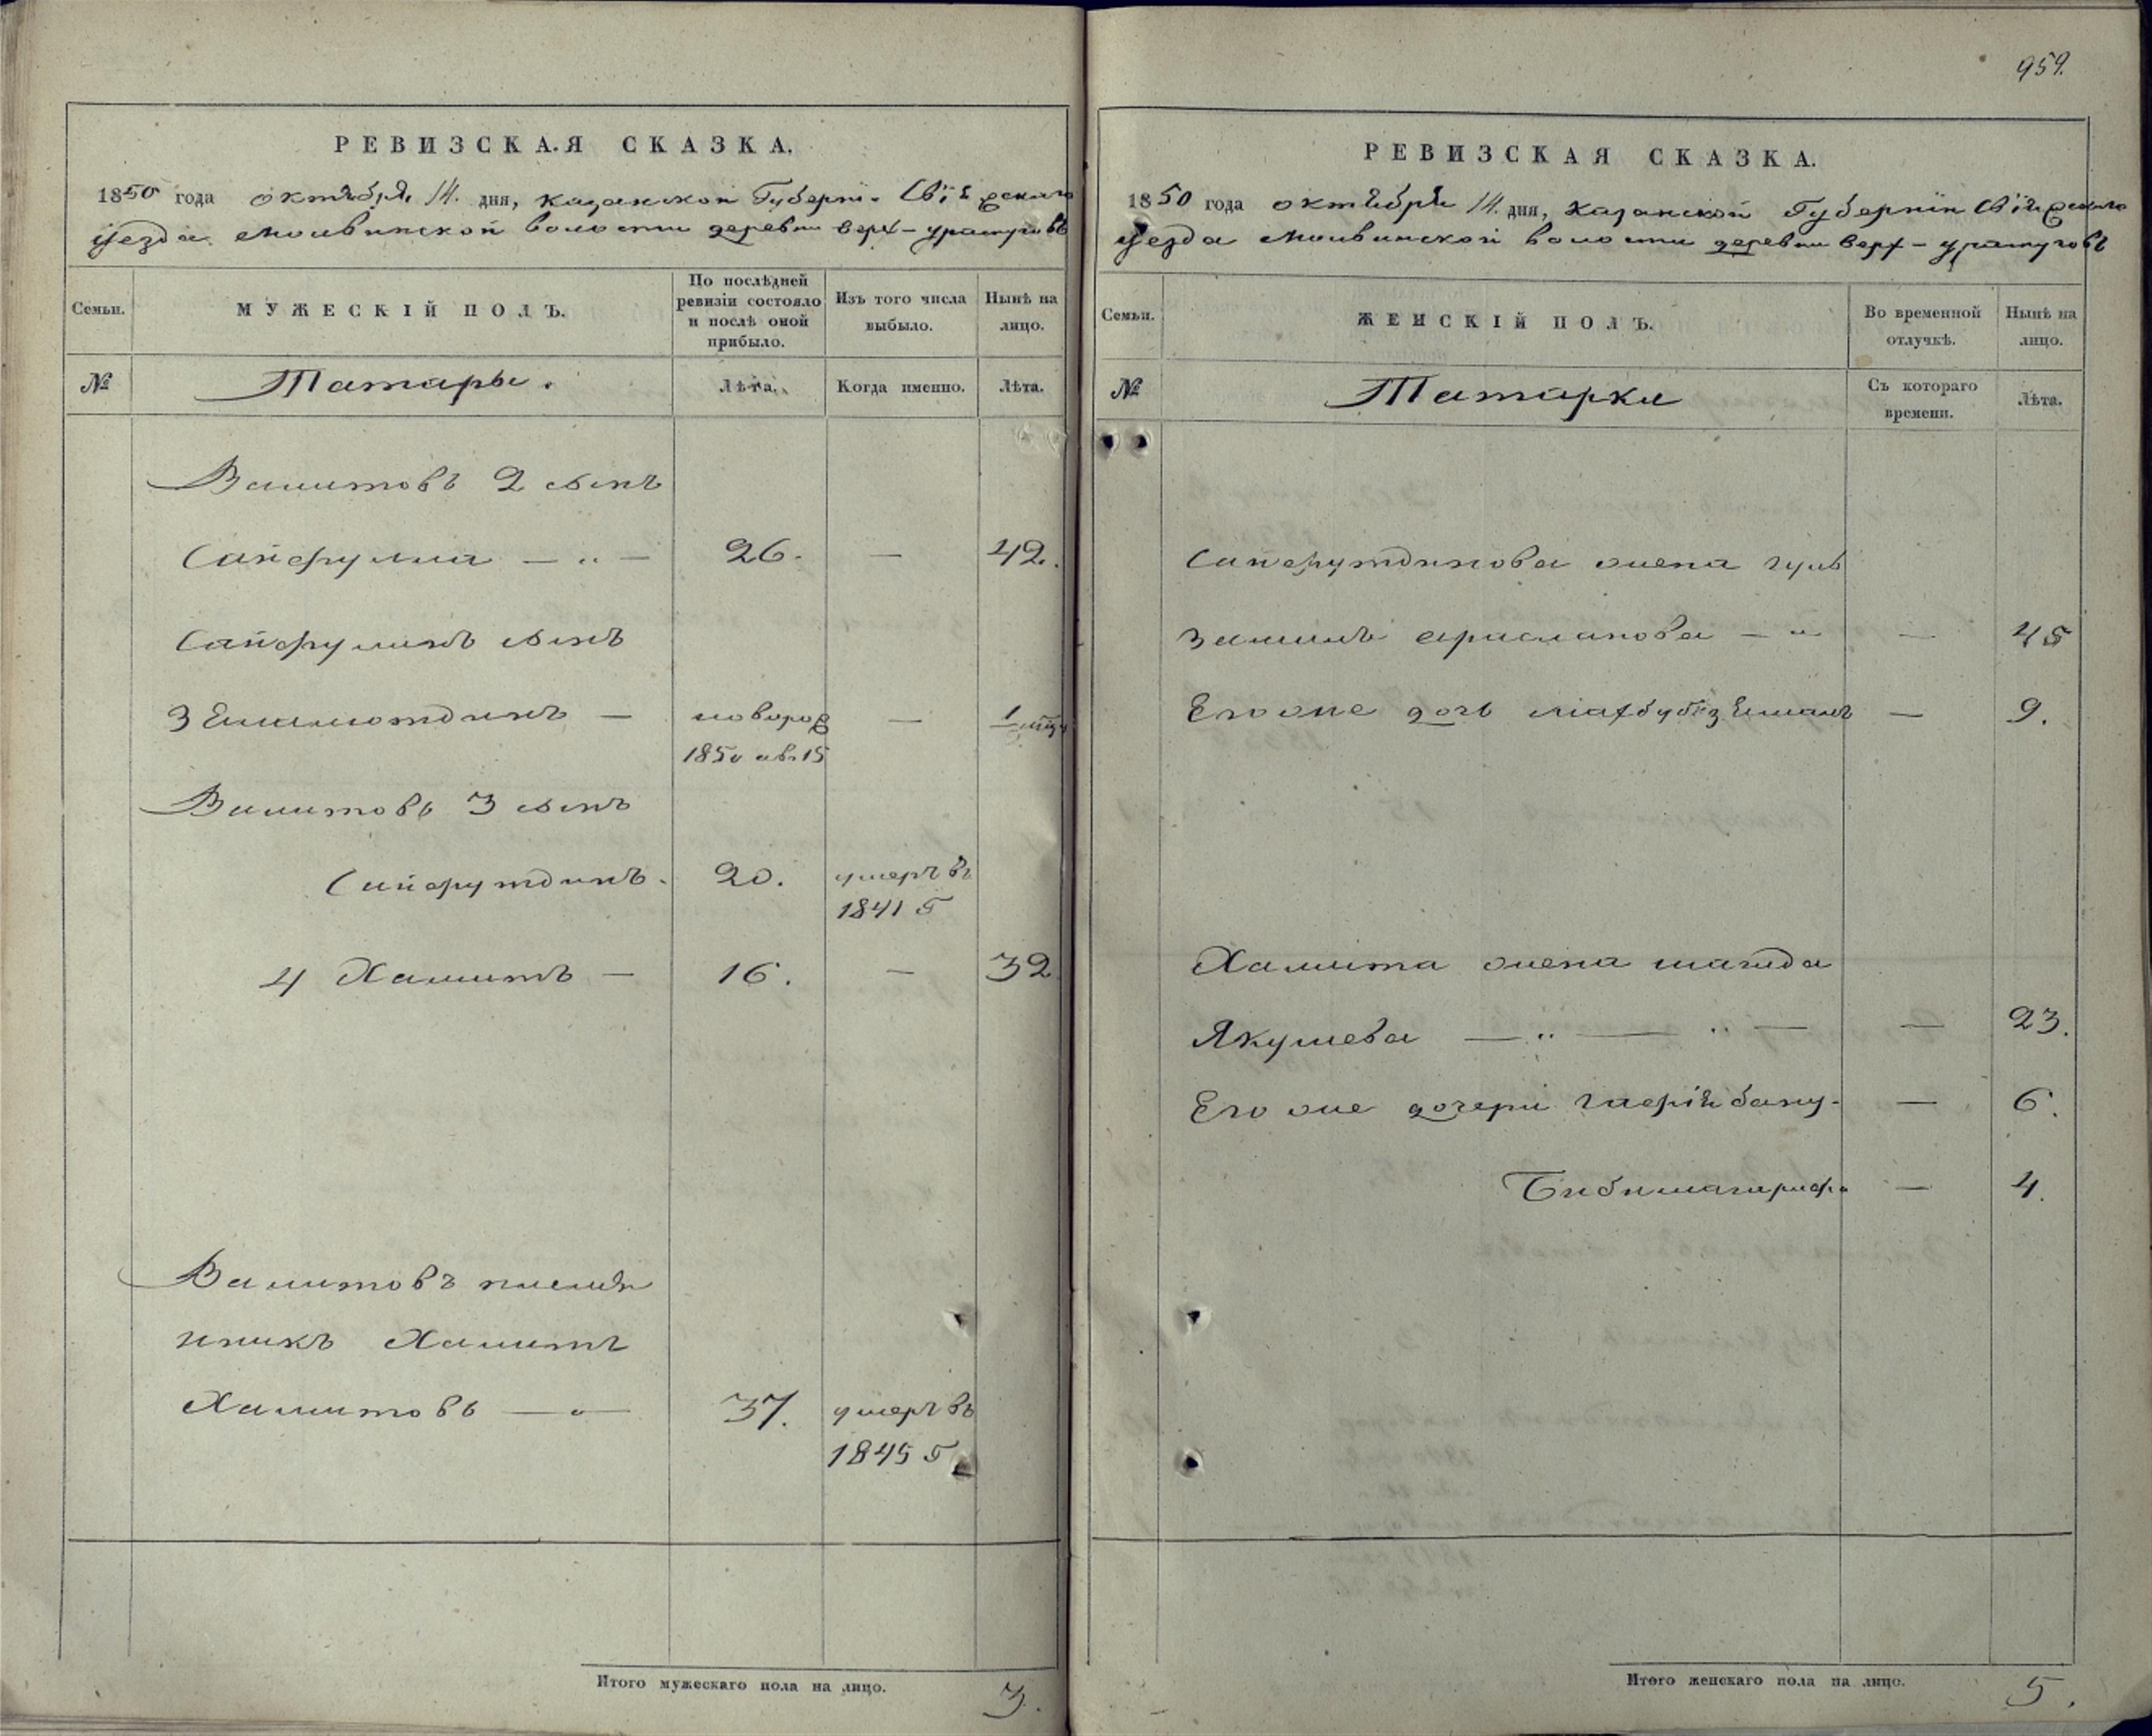 959.
РЕВИЗСКАЯ СКАЗКА.
1850 года октября 14. дня, казанской Губерні.
уезда молвинской волости деревни верх-
Семьи.
МУЖЕСКІЙ ПОЛЪ.
По послѣдней ревизіи состояло и послѣ оной прибыло.
Изъ того числа выбыло.
Нынѣ на лицо.
№
Татары.
Лѣта.
Когда именно.
Лѣта.
Валитовъ 2 сынъ
Сайфулла — „ — 26. — 42.
Сайфулинъ сынъ
— новорож — 1
1850 ав. 15
Валитовъ 3 сынъ
Сайфутдинъ. 20. умеръ въ
1841 г
4 Халитъ — 16. — 32
Валитовъ племян
никъ Халитъ
Халитовъ — „ — 37. умеръ въ
1845 г
Итого мужескаго пола на лицо. 3.
РЕВИЗСКАЯ СКАЗКА.
1850 года октября 14. дня, казанской Губерніи
уезда молвинской волости деревни верх-
Семьи.
ЖЕНСКІЙ ПОЛЪ.
Во временной отлучкѣ.
Нынѣ на лицо.
№
Татарки
Съ котораго времени.
Лѣта.
Сайфутдинова жена гуль
замаль арасланова — „ — 45
Его же дочь — 9.
Халита жена шагида
Якушева — „ — „ — — 23.
Его же дочери бану. — 6.
— 4.
Итого женскаго пола на лицо. 5.